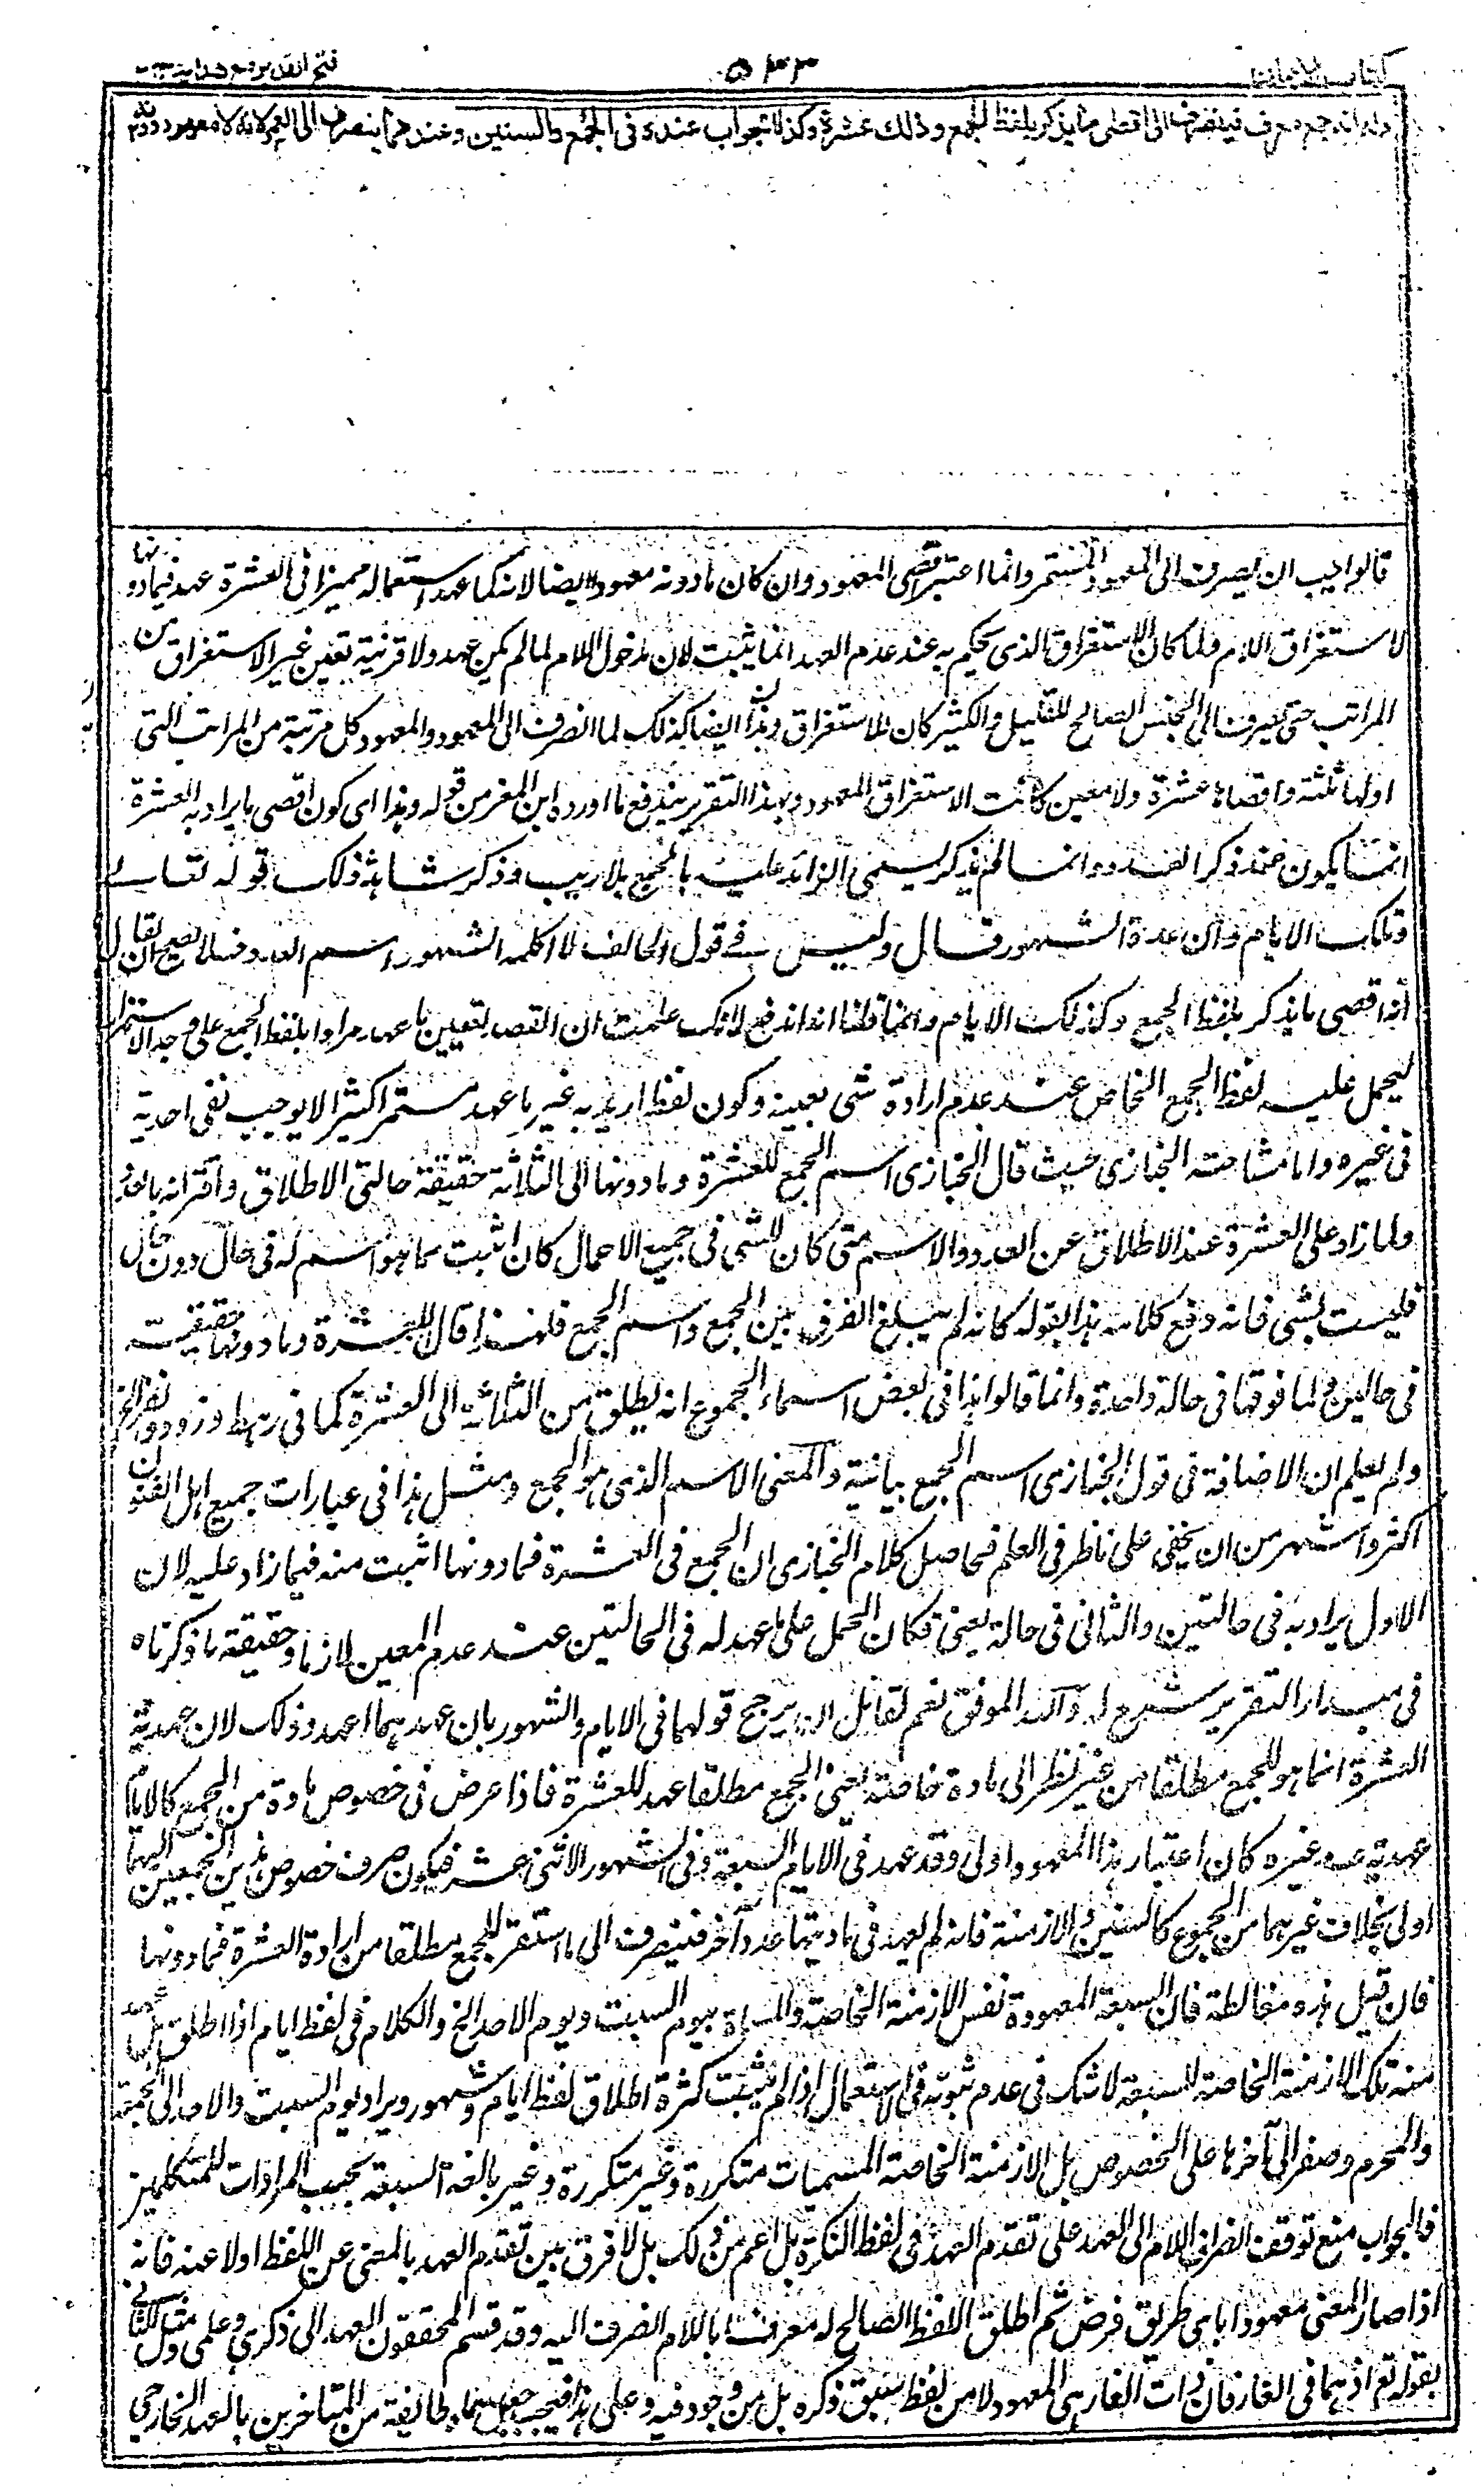 كتاب الايمان
٥٤٣
فتح القدير مع هداية
وله انه جمع معرف فينصرف الى اقصى ما يذكر بلفظ الجمع وذلك عشرة وكذا الجواب عنده فى الجمع والسنين وعندهما ينصرف الى العمر لانه لا معهود دونه
قالوا يجب ان يصرف الى المعهود المستمر وانما اعتبر اقصى المعهود وان كان مادونه معهودا ايضا لانه كما عهد استعماله مميزا فى العشرة عهد فيمادونها
لاستغراق اللام ولما كان الاستغراق الذى يحكم به عند عدم العهد انما يثبت لان مدخول اللام لما لم يكن عهد ولا قرينة تعين غير الاستغراق من
المراتب حتى يصرف الى الجنس الصالح للقليل والكثير كان للاستغراق وهذا ايضا كذلك لما انصرف الى المعهود والمعهود كل مرتبة من المراتب التى
اولها ثلثة واقصاها عشرة ولا معين كانت الاستغراق المعهود وبهذا التقرير يندفع ما اورده ابن العز من قوله وهذا اى كون اقصى ما يراد به العشرة
انما يكون عند ذكر العدد واما اذا لم يذكر يسمى الزائد عليه بالجمع بلا ريب وذكر شاهد ذلك قوله تعالى
وتلك الايام وان عدة الشهور قال وليس فے قول الحالف لا اكلمه الشهور اسم العدد فلا يصح ان يقال
انه اقصى ما يذكر بلفظ الجمع وكذلك الايام وانما قلنا انه اندفع لانك علمت ان القصد تعيين ما عهد مرادا بلفظ الجمع على وجه الاستمرار
ليحمل عليه لفظ الجمع الخاص عند عدم ارادة شى بعينه وكون لفظه اريد به غير ما عهد مستمرا كثيرا لا يوجب نفى
فى غيره واما مشاحته الخبازى حيث قال الخبازى اسم الجمع للعشرة ومادونها الى الثلاثة حقيقة حالتى الاطلاق واقترانه بالعدد
ولما زاد على العشرة عند الاطلاق عن العدد والاسم متى كان للشى فى جميع الاحوال كان اثبت مما هو اسم له فى حال دون حال
فليست بشى فانه دفع كلامه بهذا بقوله كانه لم يبلغ الفرق بين الجمع واسم الجمع فلهذا قال للعشرة ومادونها حقيقت
فى حالين ولما فوقها فى حالة واحدة وانما قالوا هذا فى بعض اسماء الجموع انه يطلق من الثلاثة الى العشرة كما فى رهط وذود ونفر
ولم يعلم ان الاضافة فى قول الخبازى اسم الجمع بيانية والمعنى الاسم الذى هو الجمع ومثل هذا فى عبارات جميع اهل الفنون
اكثر واشهر من ان يخفى على ناظر فى العلم فحاصل كلام الخبازى ان الجمع فى العشرة فمادونها اثبت منه فيما زاد عليه لان
الاول يراد به فى حالتين والثانى فى حالة يعنى فكان الحمل على ما عهد له فى الحالتين عند عدم المعين لازما وحقيقة ما ذكرناه
فى مبدا التقرير شرح له والله الموفق نعم لقائل ان يرجح قولهما فى الايام والشهور بان عهدهما اعهد وذلك لان عهدية
العشرة انما هو للجمع مطلقا من غير نظر الى مادة خاصة يعنى الجمع مطلقا عهد للعشرة فاذا عرض فى خصوص مادة من الجمع كالايام
عهدية عدد غيره كان اعتبار هذا المعهود اولى وقد عهد فى الايام السبعة وفى الشهور الاثنى عشر فيكون صرف خصوص هذين الجمعين اليهما
اولى بخلاف غيرهما من الجموع كالسنين والازمنة فانه لم يعهد فى مادتيها عدد آخر فينصرف الى ما استقر للجمع مطلقا من ارادة العشرة فمادونها
فان قيل هذه مغالطة فان السبعة المعهودة نفس الازمنة الخاصة والمسماة بيوم السبت ويوم الاحد الخ والكلام فى لفظ ايام اذا اطلق هل عهد
منه تلك الازمنة الخاصة السبعة لا شك فى عدم ثبوته فى الاستعمال اذ لم يثبت كثرة اطلاق لفظ ايام وشهور ويراد يوم السبت والاحد الى الجمعة
والمحرم وصفر الى آخرها على الخصوص بل الازمنة الخاصة المسميات متكررة وغير متكررة وغير بالغة السبعة بحسب المرادات للمتكلمين
فالجواب منع توقف انصراف اللام الى العهد على تقدم العهد فى لفظ النكرة بل اعم من ذلك بل لا فرق بين تقدم العهد بالمعنى عن اللفظ اولا عنه فانه
اذا صار المعنى معهودا باى طريق فرض ثم اطلق اللفظ الصالح له معرفا باللام انصرف اليه وقد قسم المحققون العهد الى ذكرى وعلمى ومثل للثانى
بقوله تع اذ هما فى الغار فان ذات الغار هى المعهود لا من لفظ سبق ذكره بل من وجود فيه وعلى هذا فيجب جعل ما سماه طائفة من المتاخرين بالعهد الخارجى